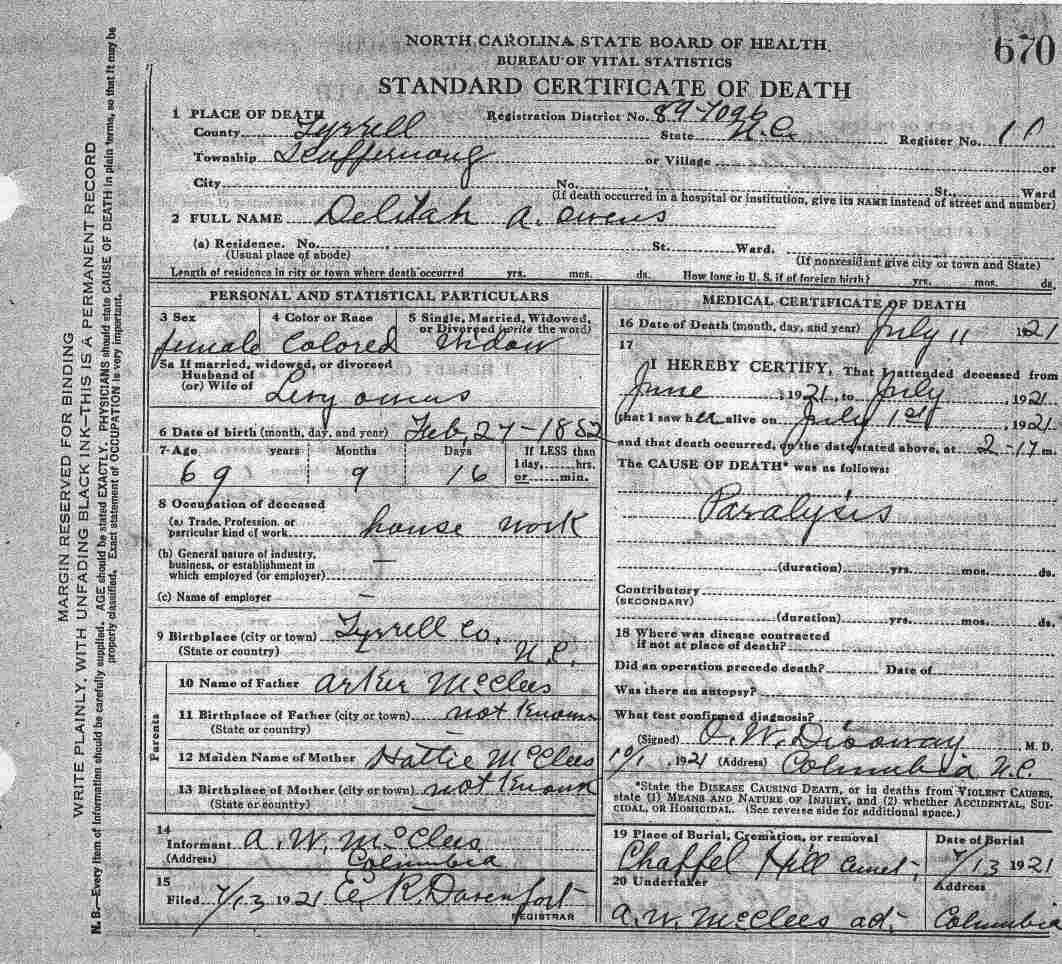 670
NORTH CAROLINA STATE BOARD OF HEALTH
BUREAU OF VITAL STATISTICS
STANDARD CERTIFICATE OF DEATH
1 PLACE OF DEATH Registration District No. 89-7096
County Tyrrell State N.C. Register No. 10
Township Scuppernong or Village or
City No. St., Ward
(If death occurred in a hospital or institution, give its NAME instead of street and number)
2 FULL NAME Delilah A. Owens
(a) Residence. No. St. Ward.
(Usual place of abode) (If nonresident give city or town and State)
Length of residence in city or town where death occurred yrs. mos. ds. How long in U. S. if of foreign birth? yrs. mos. ds.
PERSONAL AND STATISTICAL PARTICULARS
3 Sex 4 Color or Race 5 Single, Married, Widowed, or Divorced (write the word)
female Colored Widow
5a If married, widowed, or divorced
Husband of
(or) Wife of Levy Owens
6 Date of birth (month, day, and year) Feb, 27-1852
7-Age years Months Days If LESS than
1 day, hrs.
69 9 16 or min.
8 Occupation of deceased
(a) Trade, Profession, or
particular kind of work house work
(b) General nature of industry,
business, or establishment in
which employed (or employer) —
(c) Name of employer —
9 Birthplace (city or town) Tyrrell Co.
(State or country) N.C.
Parents
10 Name of Father Arker McClees
11 Birthplace of Father (city or town) not Known
(State or country) —
12 Maiden Name of Mother Hattie McClees
13 Birthplace of Mother (city or town) not Known
(State or country) —
14
Informant A. W. McClees
(Address) Columbia
15
Filed 7/13 1921 E. R. Davenport
REGISTRAR
MEDICAL CERTIFICATE OF DEATH
16 Date of Death (month, day, and year) July 11 1921
17
I HEREBY CERTIFY, That I attended deceased from
June, 1921, to July, 1921.
(that I saw her alive on July 1st, 1921
and that death occurred, on the date stated above, at 2-17 m.
The CAUSE OF DEATH* was as follows:
Paralysis
(duration) yrs. mos. ds.
Contributory
(SECONDARY)
(duration) yrs. mos. ds.
18 Where was disease contracted
if not at place of death?
Did an operation precede death? Date of
Was there an autopsy?
What test confirmed diagnosis?
(Signed) M. D.
10/1, 1921 (Address) Columbia N.C.
*State the DISEASE CAUSING DEATH, or in deaths from VIOLENT CAUSES,
state (1) MEANS AND NATURE OF INJURY, and (2) whether ACCIDENTAL, SUI-
CIDAL, OR HOMICIDAL. (See reverse side for additional space.)
19 Place of Burial, Cremation, or removal Date of Burial
Chappel Hill Cemt, 7/13 1921
20 Undertaker Address
A. W. McClees ad. Columbia
MARGIN RESERVED FOR BINDING
WRITE PLAINLY, WITH UNFADING BLACK INK—THIS IS A PERMANENT RECORD
N. B.—Every item of information should be carefully supplied. AGE should be stated EXACTLY. PHYSICIANS should state CAUSE OF DEATH in plain terms, so that it may be
properly classified. Exact statement of OCCUPATION is very important.